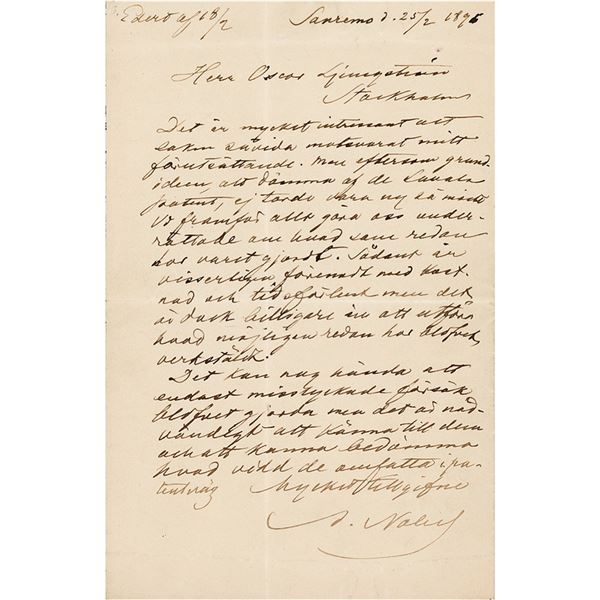 Edert af 18/2 Sanremo d. 25/2 1895
Herr Oscar Ljungström
Stockholm
Det är mycket intressant att
saken såvida motsvarat mitt
förutsättande. Men eftersom grund-
ideen, att dömma af de Lavals
patent, ej torde vara ny så måste
vi framför allt göra oss under-
rättade om hvad som redan
har varit gjordt. Sådant är
visserligen förenadt med kost-
nad och tidsförlust men det
är dock billigare än att utföra
hvad möjligen redan har blifvit
verkstäldt.
Det kan nog hända att
endast misslyckade försök
blifvit gjorda men det är nöd-
vändigt att känna till dem
och att kunna bedömma
hvad vidd de omfatta i pa-
tentväg Mycket tillgifne
A. Nobel